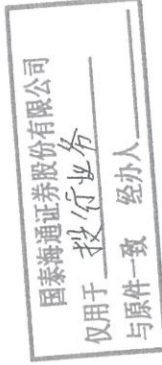 国泰海通证券股份有限公司
仅用于 投行业务
与原件一致 经办人